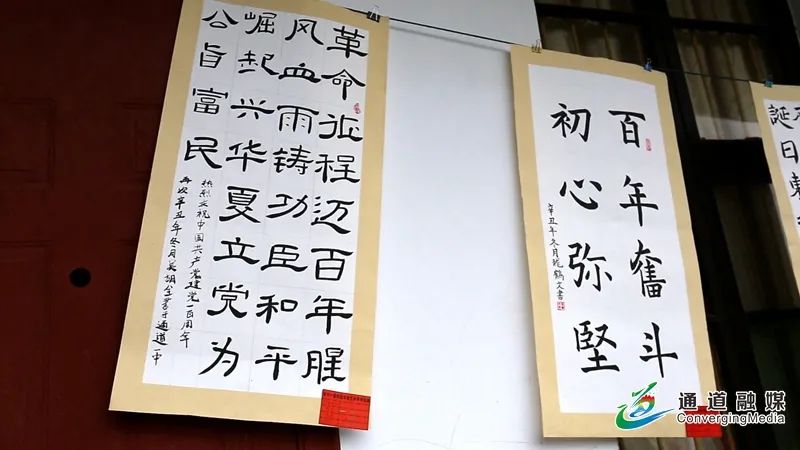 革命征程迈百年腥
风血雨铸功臣和平
崛起兴华夏立党为
公旨富民
热烈庆祝中国共产党建党一百周年
辛丑年冬月 书于通道一中
百年奮斗
初心弥堅
辛丑年冬月 鹤文書
誕日
通道融媒
ConvergingMedia